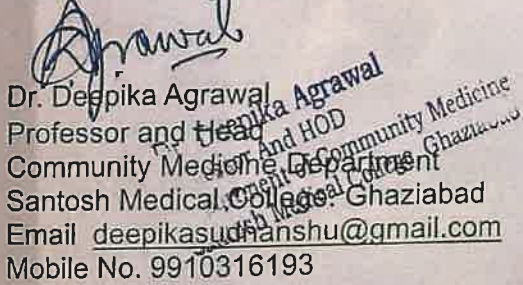 Agrawal
Dr. Deepika Agrawal
Professor and Head
Community Medicine Department
Santosh Medical College, Ghaziabad
Email deepikasudhanshu@gmail.com
Mobile No. 9910316193
Deepika Agrawal
And HOD
of Community Medicine
Medical College, Ghaziabad